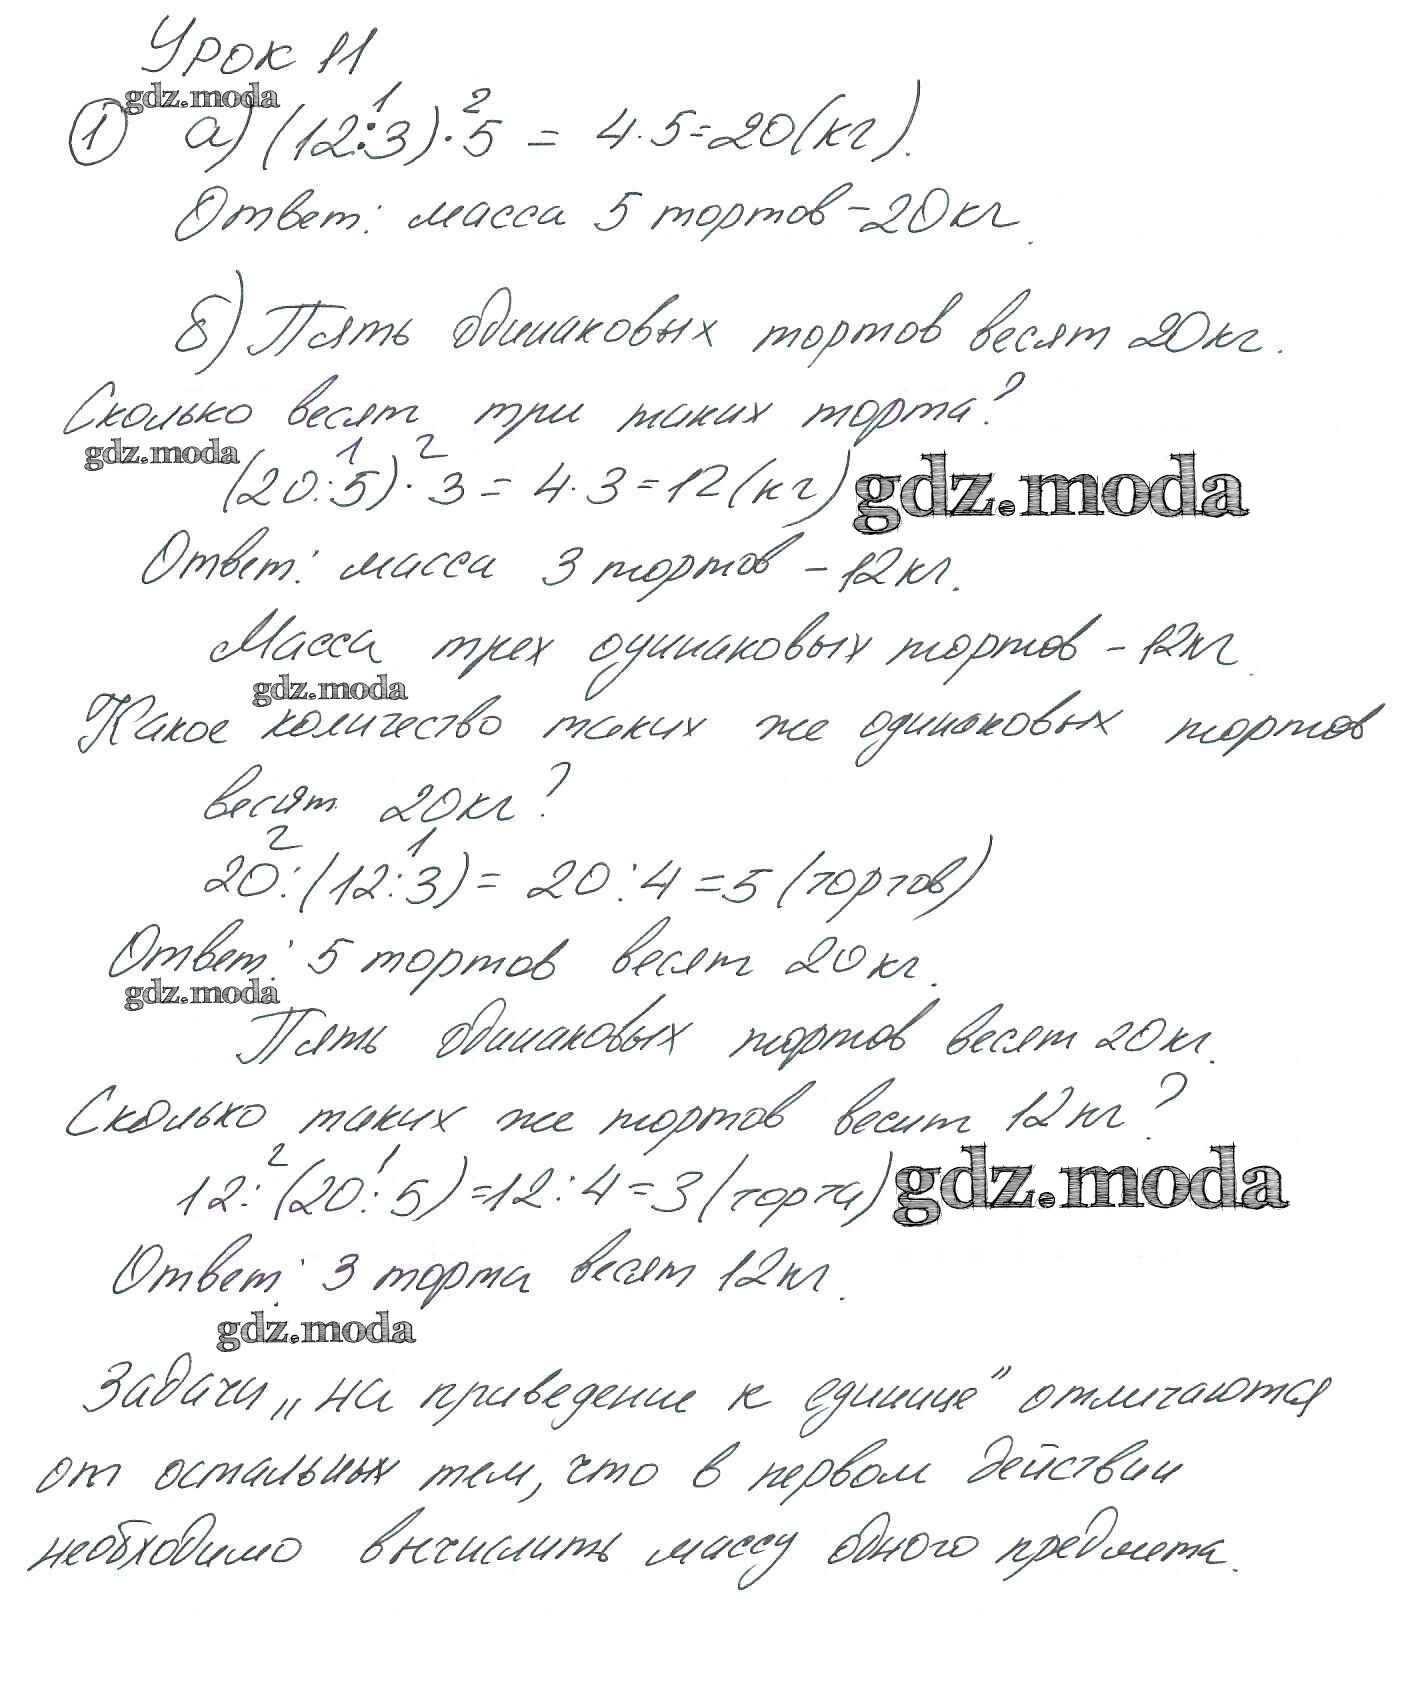 Урок 11
gdz.moda
1 а) (12:3)·5 = 4·5=20(кг).
1 2
Ответ: масса 5 тортов - 20кг.
б) Пять одинаковых тортов весят 20кг.
Сколько весят три таких торта?
gdz.moda
1 2
(20:5)·3 = 4·3=12(кг)
gdz.moda
Ответ: масса 3 тортов - 12кг.
Масса трех одинаковых тортов - 12кг.
gdz.moda
Какое количество таких же одинаковых тортов
весят 20кг?
2 1
20:(12:3)= 20:4=5(тортов)
Ответ: 5 тортов весят 20кг.
gdz.moda
Пять одинаковых тортов весят 20кг.
Сколько таких же тортов весит 12кг?
2 1
12:(20:5)=12:4=3(торта)
gdz.moda
Ответ: 3 торта весят 12кг.
gdz.moda
Задачи „на приведение к единице" отличаются
от остальных тем, что в первом действии
необходимо вычислить массу одного предмета.